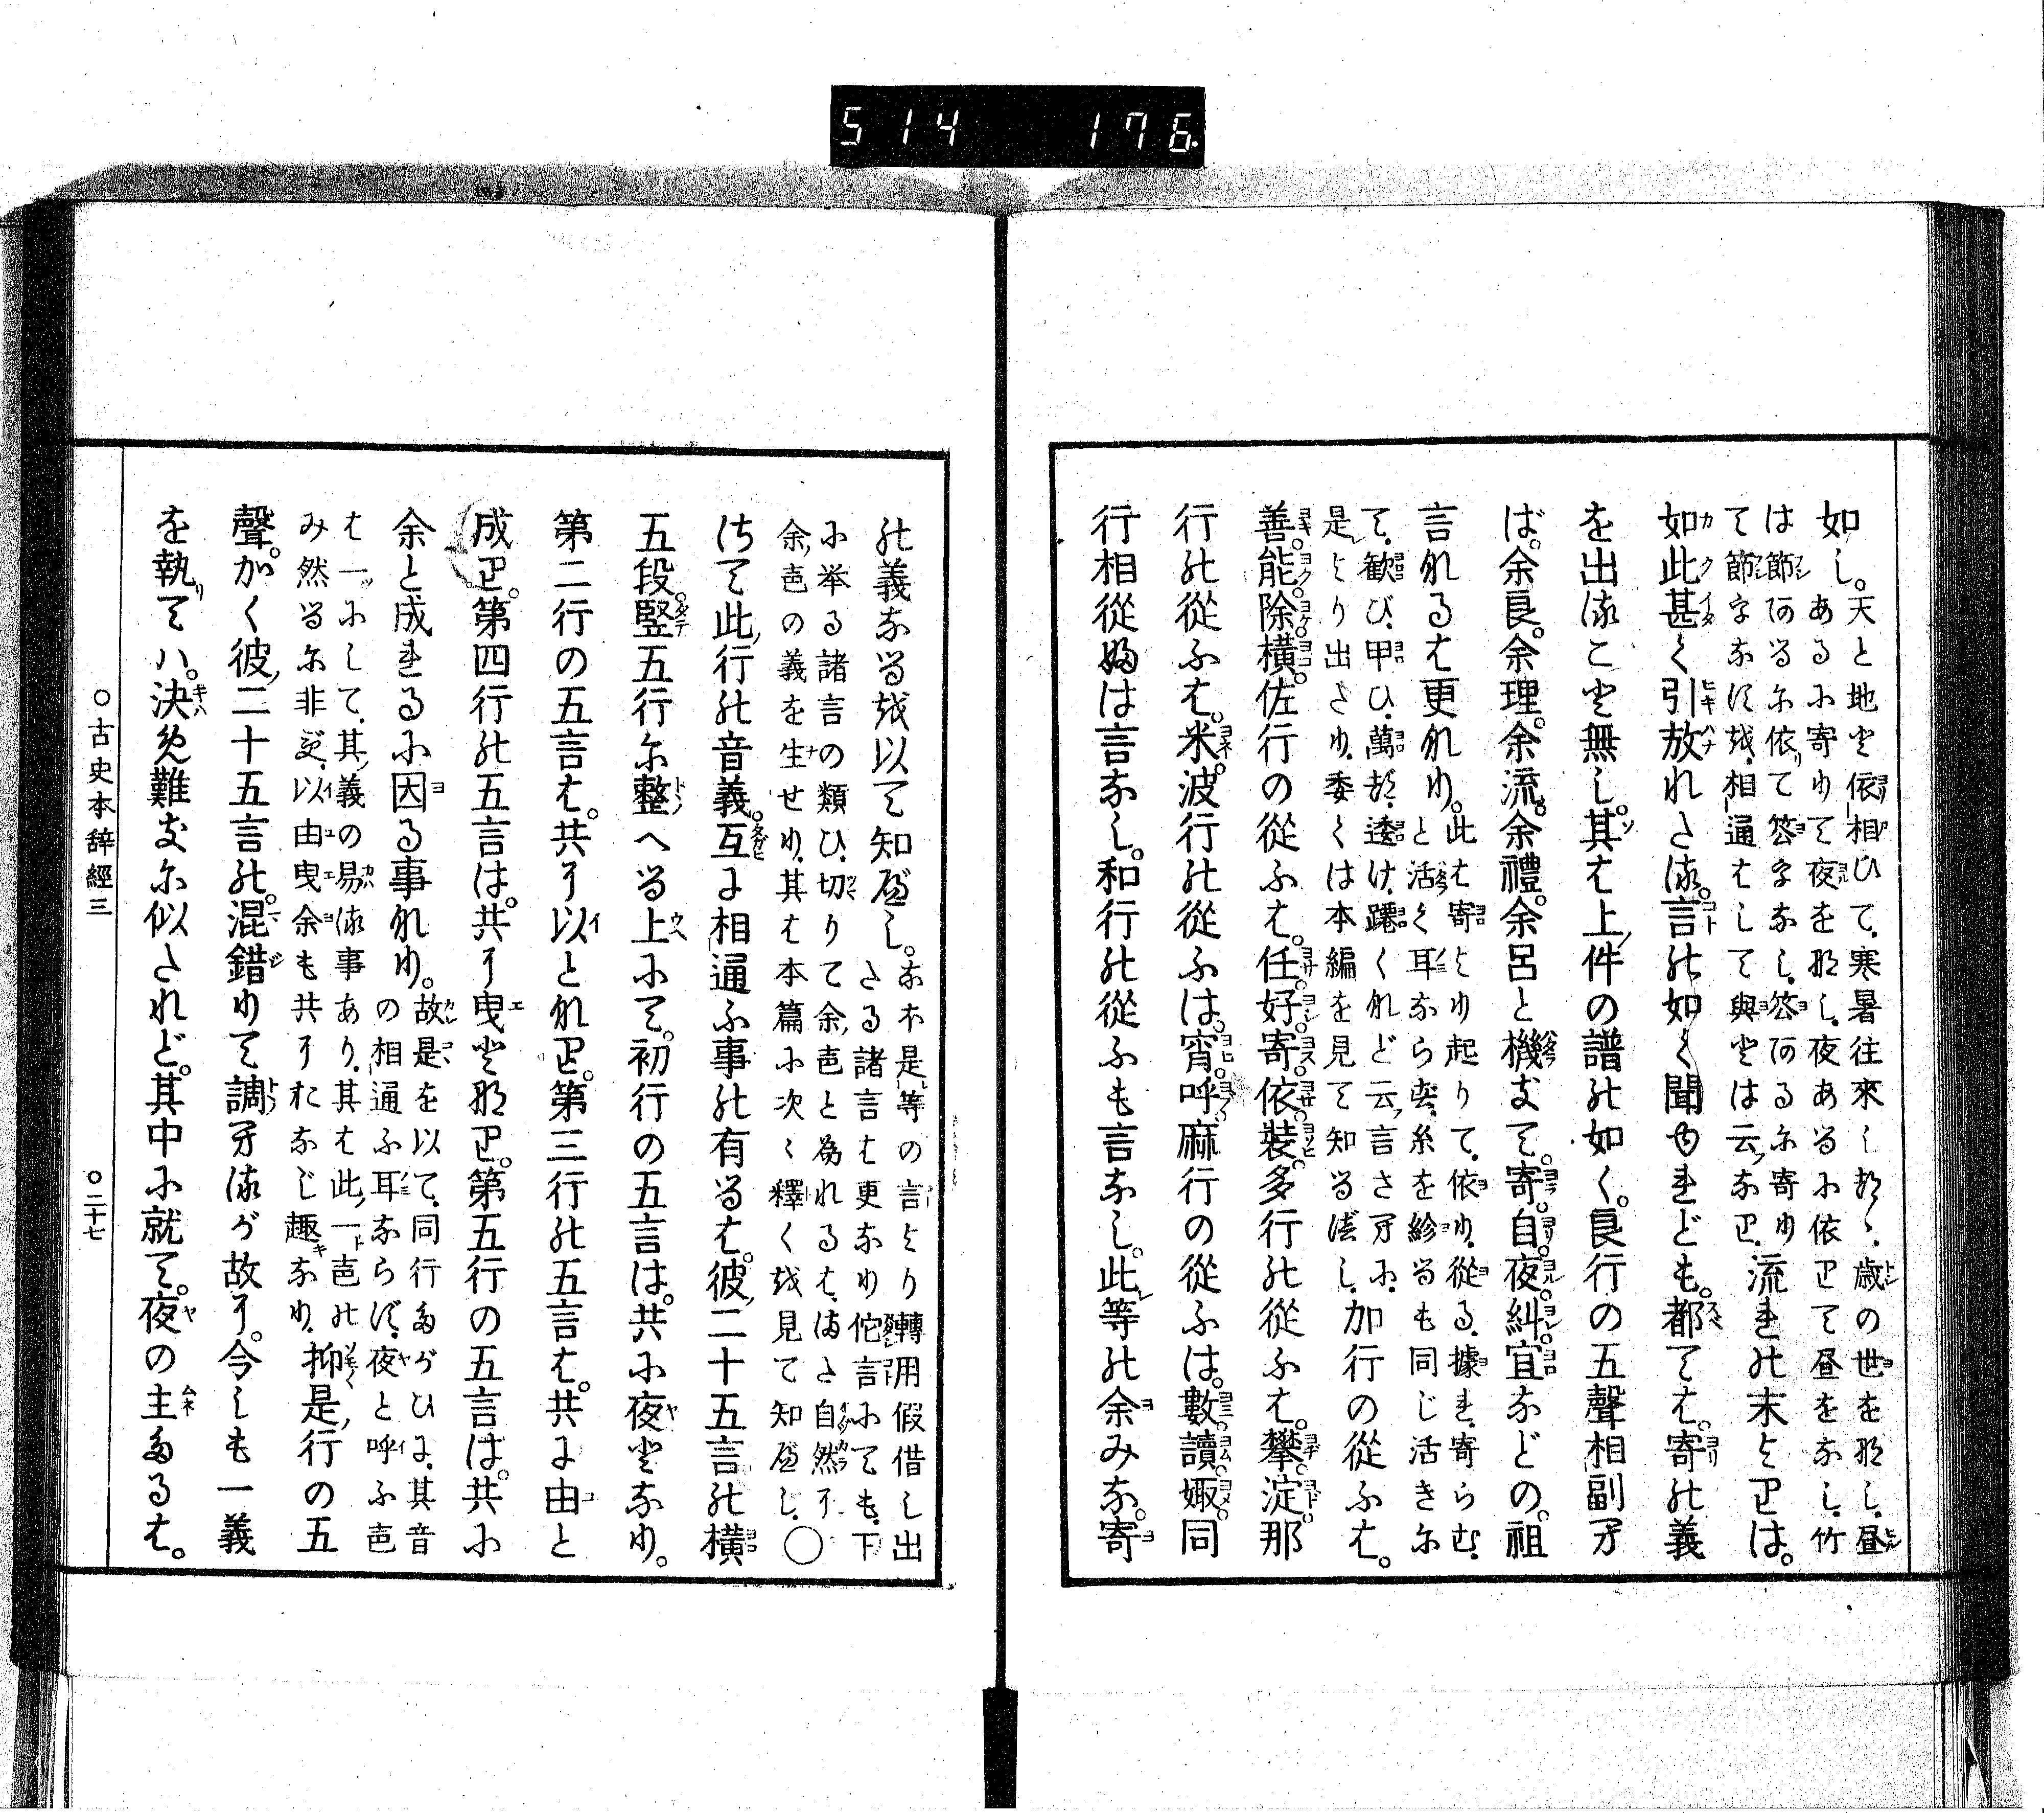 514 176.
如し。天と地と依相ひて、寒暑往來し訖ゝ、歳の世を那し、昼
あるに寄りて夜を那し、夜あるに依りて昼をなし、竹
は節あるに依りて答字なし、答あるに寄り
て節字なほ越、相通はして與とは云なり、流れの末よりは。
如此甚く引放れたる。言の如く聞ゆれども。都ては。寄の義
を出ること無し。其は上件の譜の如く。良行の五聲相副于
ば。余良。余理。余流。余禮。余呂と機きて。寄。自。夜。糾。宜などの。祖
言なるは更なり。此は寄より起りて、依り、從る、據れ、寄らむ、
と活く耳ならず、糸を紾るも同じ活きに
て、歓び、甲ひ、萬訖、逶け、蹮くれど云言さ于に、
是より出たり、委くは本編を見て知るほし、加行の從ふは。
善。能。除。横。佐行の從ふは。任。好。寄。依。装。多行の從ふは。攀。淀。那
行の從ふは。米。波行の從ふは。宵。呼。麻行の從ふは。數。讀。娵。同
行相從ぬは言なし。和行の從ふも言なし。此等の余みな。寄
の義なる越以て知べし。なお是等の言より轉用假借し出
たる諸言は更なり佗言にても、下
に挙る諸言の類ひ、切りて余、邑と為れるは、ほた自然于
余、邑の義を生せり、其は本篇に次々釋く越見て知べし、〇
はて此行の音義。互に相通ふ事の有るは。彼二十五言の横
五段。竪五行に整へる上にて。初行の五言は。共に夜となり。
第二行の五言は。共于以となり。第三行の五言は。共に由と
成り。第四行の五言は。共于曳と那り。第五行の五言は。共に
余と成れるに因る事なり。故是を以て、同行たがひに、其音
の相通ふ耳ならず、夜と呼ふ邑
は一にして、其義の易る事あり、其は此一邑の
み然るに非ず、以由曳余も共于おなじ趣なり、抑是行の五
聲。かく彼二十五言の。混錯りて調于るが故于。今しも一義
を執てハ。決め難きに似たれど。其中に就て。夜の主たるは。
〇古史本辞經三 〇二十七